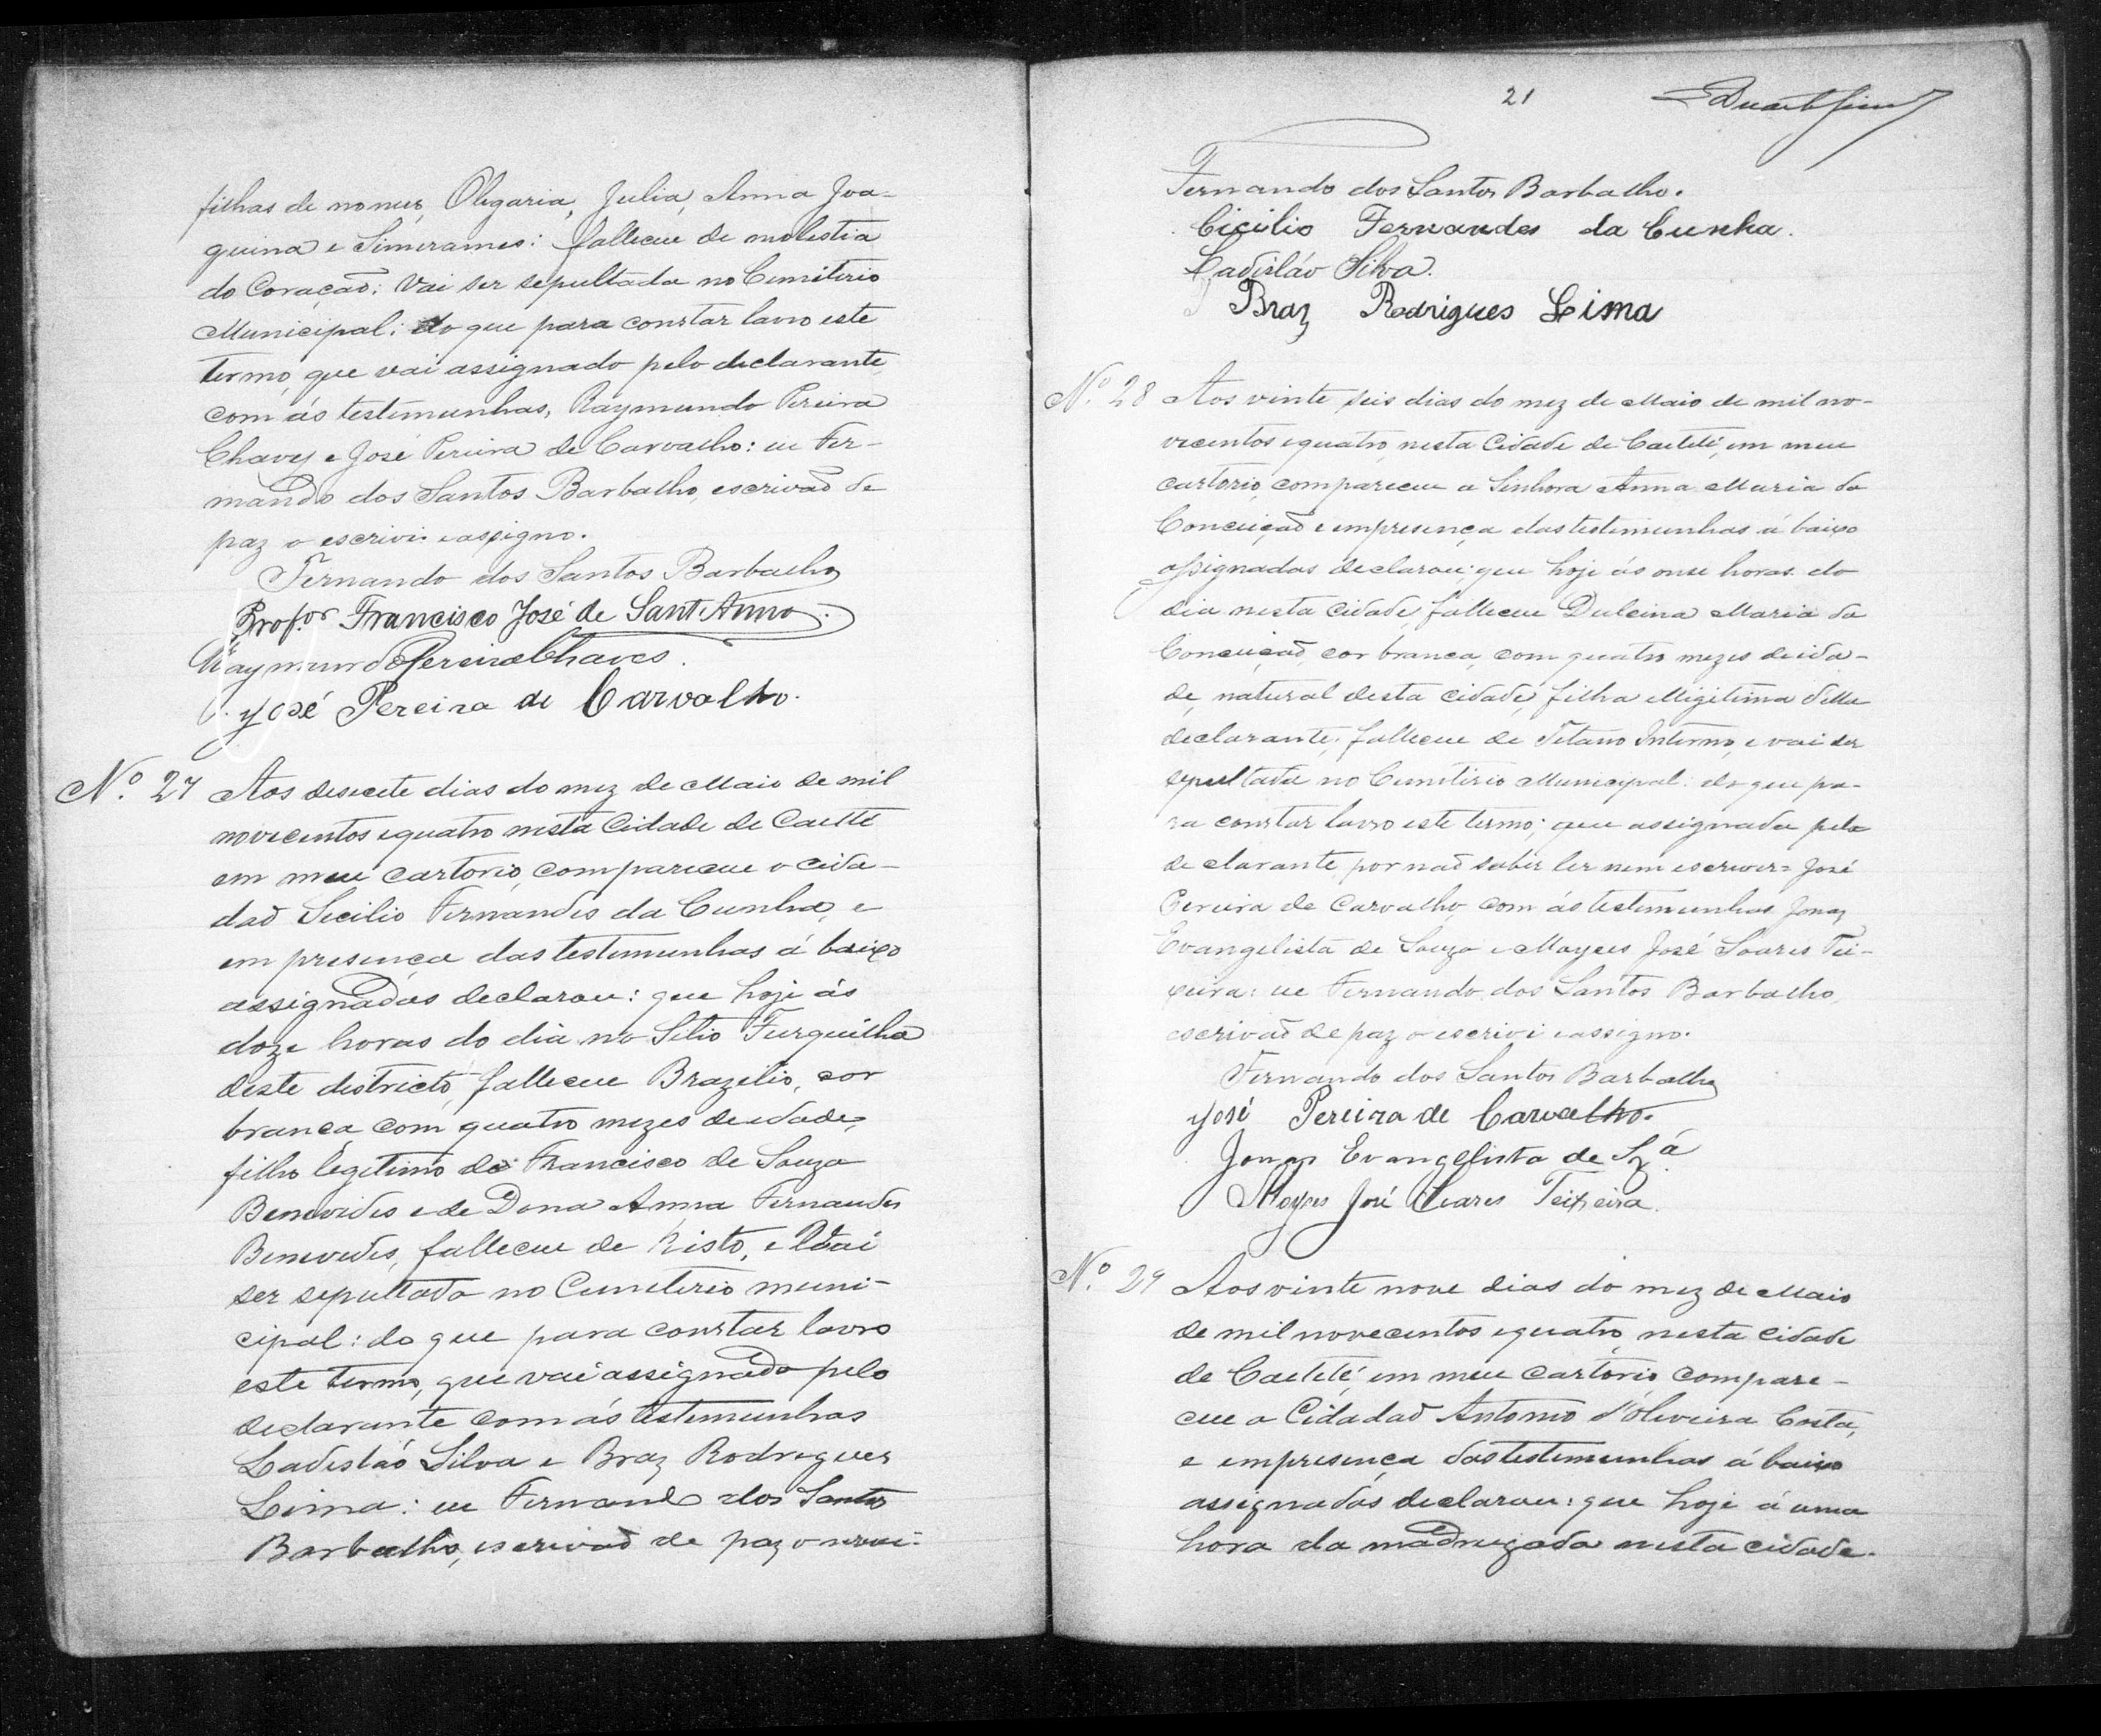 filhas de nomes, Olegaria, Julia, Anna Joa-
quina e Simirames: falleceu de molestia
do Coração: Vai ser sepultada no Cemiterio
Municipal: do que para constar lavro este
termo, que vai assignado pelo declarante,
com ás testimunhas, Raymundo Pereira
Chaves e José Pereira de Carvalho: eu Fer-
nando dos Santos Barbalho, escrivaõ de
paz o escrivi e assigno.
Fernando dos Santos Barbalho
Prof.or Francisco José de Sant'Anna
Raymundo Pereira Chaves.
José Pereira de Carvalho.
Nº. 27 Aos desecete dias do mez de Maio de mil
novecentos e quatro nesta Cidade de Caetté
em meu cartorio, compareceu o cida-
daõ Secilio Fernandes da Cunha, e
em presenca das testemunhas á baixo
assignadas declarou: que hoje ás
doze horas do dia no Sitio Furquilha
deste districto, falleceu Brazilio, cor
branca, com quatro mezes de idade,
filho legitimo de Francisco de Souza
Benevides e de Dona Anna Fernandes
Benevides, falleceu de e vai
ser sepultado no Cemeterio muni-
cipal: do que para constar lavro
este termo, que vai assignado pelo
declarante com ás testemunhas
Ladesláo Silva e Braz Rodrigues
Leima: eu Fernando dos Santos
Barbalho, escrivaõ de paz o
21
Fernando dos Santos Barbalho.
Cicilio Fernandes da Cunha.
Ladisláo Silva.
Braz Rodrigues Leima
Nº. 28 Aos vinte seis dias do mez de Maio de mil no-
vecentos e quatro, nesta Cidade de Caetité, em meu
cartorio, compareceu a Senhora Anna Maria da
Conceiçaõ e em presença das testimunhas á baixo
assignadas declarou: que hoje ás onse horas do
dia nesta Cidade, falleceu Dulcina Maria da
Conceiçaõ, cor branca, com quatro mezes de ida-
de, natural desta cidade, filha illigitima della
declarante, falleceu de Tetano Interno, e vai ser
sepultada no Cemitirio Municipal: do que pa-
ra constar lavro este termo; que assignada pela
declarante, por naõ saber ler nem escrever= José
Pereira de Carvalho, com ás testimunhas Jonas
Evangelista de Souza e Moyses José Soares Tei-
xeira: eu Fernando dos Santos Barbalho,
escrivaõ de paz o escrivi e assigno.
Fernando dos Santos Barbalho
José Pereira de Carvalho.
Jonas Evangelista de Sz.ª
Moyses José Soares Teixeira.
Nº. 29 Aos vinte nove dias do mez de Maio
de mil novecentos e quatro, nesta cidade
de Caetité, em meu cartorio compare-
ceu o Cidadaõ Antonio d'Oliveira Costa,
e em presença das testimunhas á baixo
assignadas declarou: que hoje á uma
hora da madrugada nesta cidade.